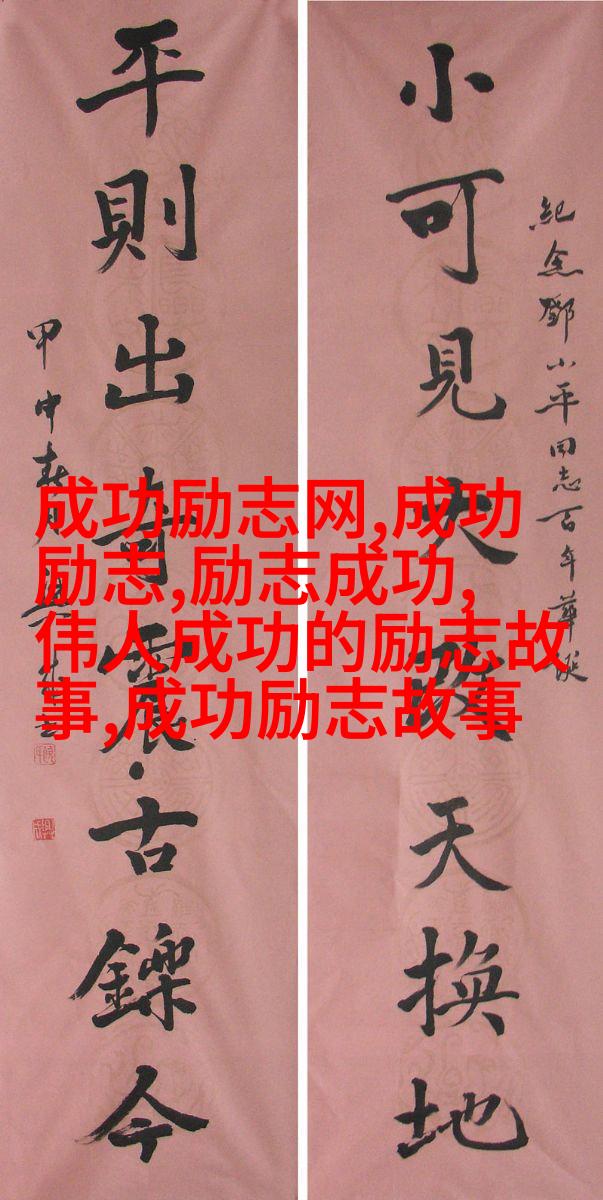 紀念鄧小平同志百年華誕
小可見大改天換地
平則出奇震古鑠今
甲申春月
成功励志网,成功
励志,励志成功,
伟人成功的励志故
事,成功励志故事